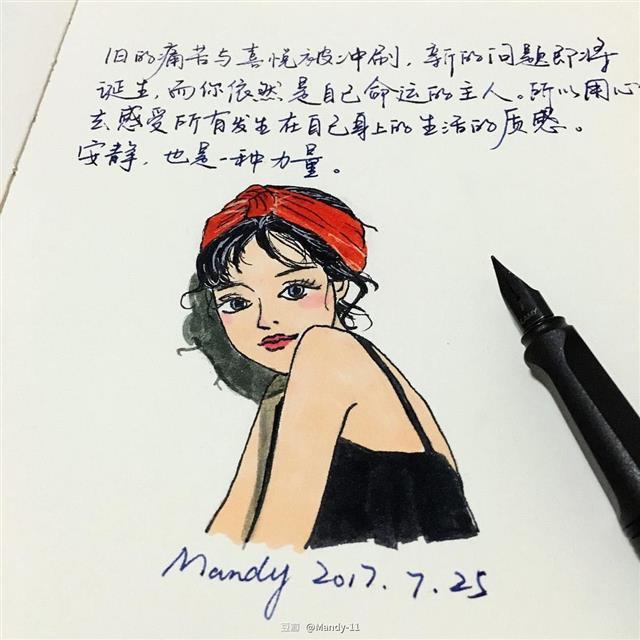 旧的痛苦与喜悦被冲刷，新的问题即将
诞生，而你依然是自己命运的主人。所以用心
去感受所有发生在自己身上的生活的质感。
安静，也是一种力量。
LAMY
Mandy 2017.7.25
豆瓣 @Mandy-11